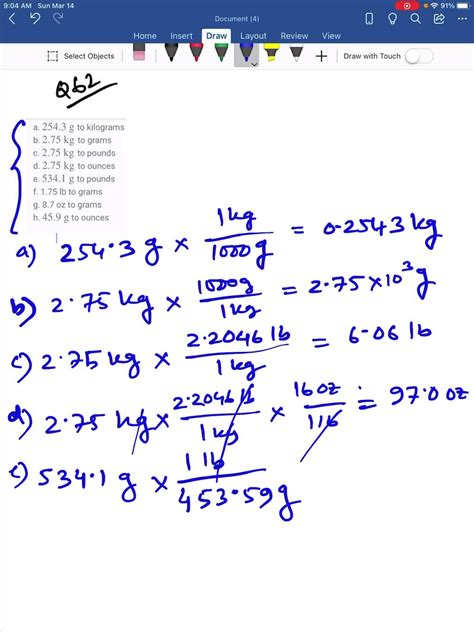 9:04 AM Sun Mar 14
91%
Document (4)
Home Insert Draw Layout Review View
Select Objects
Draw with Touch
Q62
a. 254.3 g to kilograms
b. 2.75 kg to grams
c. 2.75 kg to pounds
d. 2.75 kg to ounces
e. 534.1 g to pounds
f. 1.75 lb to grams
g. 8.7 oz to grams
h. 45.9 g to ounces
a) 254.3 g × 1kg / 1000g = 0.2543 kg
b) 2.75 kg × 1000g / 1kg = 2.75 × 10³ g
c) 2.75 kg × 2.2046 lb / 1 kg = 6.06 lb
d) 2.75 kg × 2.2046 lb / 1 kg × 16 oz / 1 lb = 97.0 oz
e) 534.1 g × 1 lb / 453.59 g